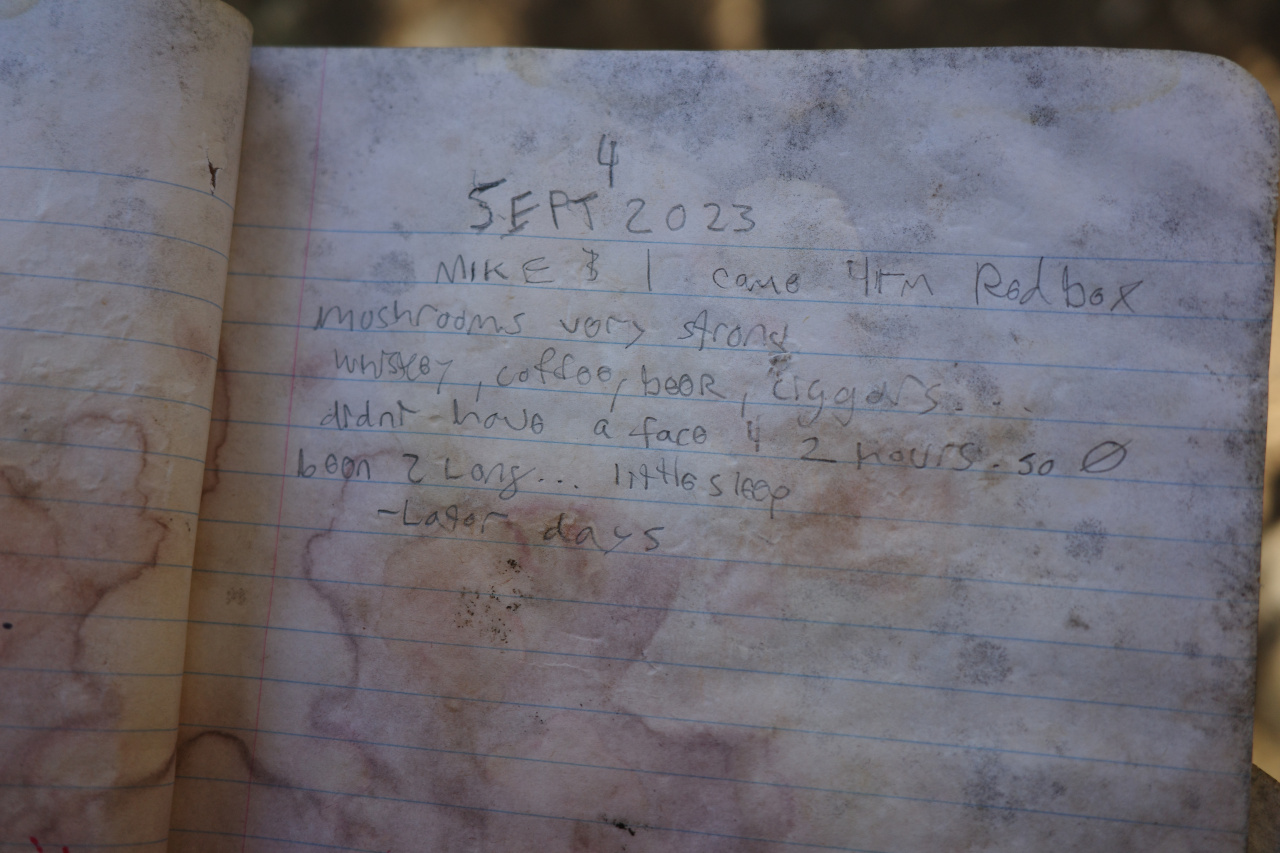 4
SEPT 2023
MIKE & I came 4rm Red box
moshrooms very strong
whiskey, coffee, beer, ciggars...
didnt have a face 4 2 hours. so Ø
been 2 Long... little sleep
-Later days